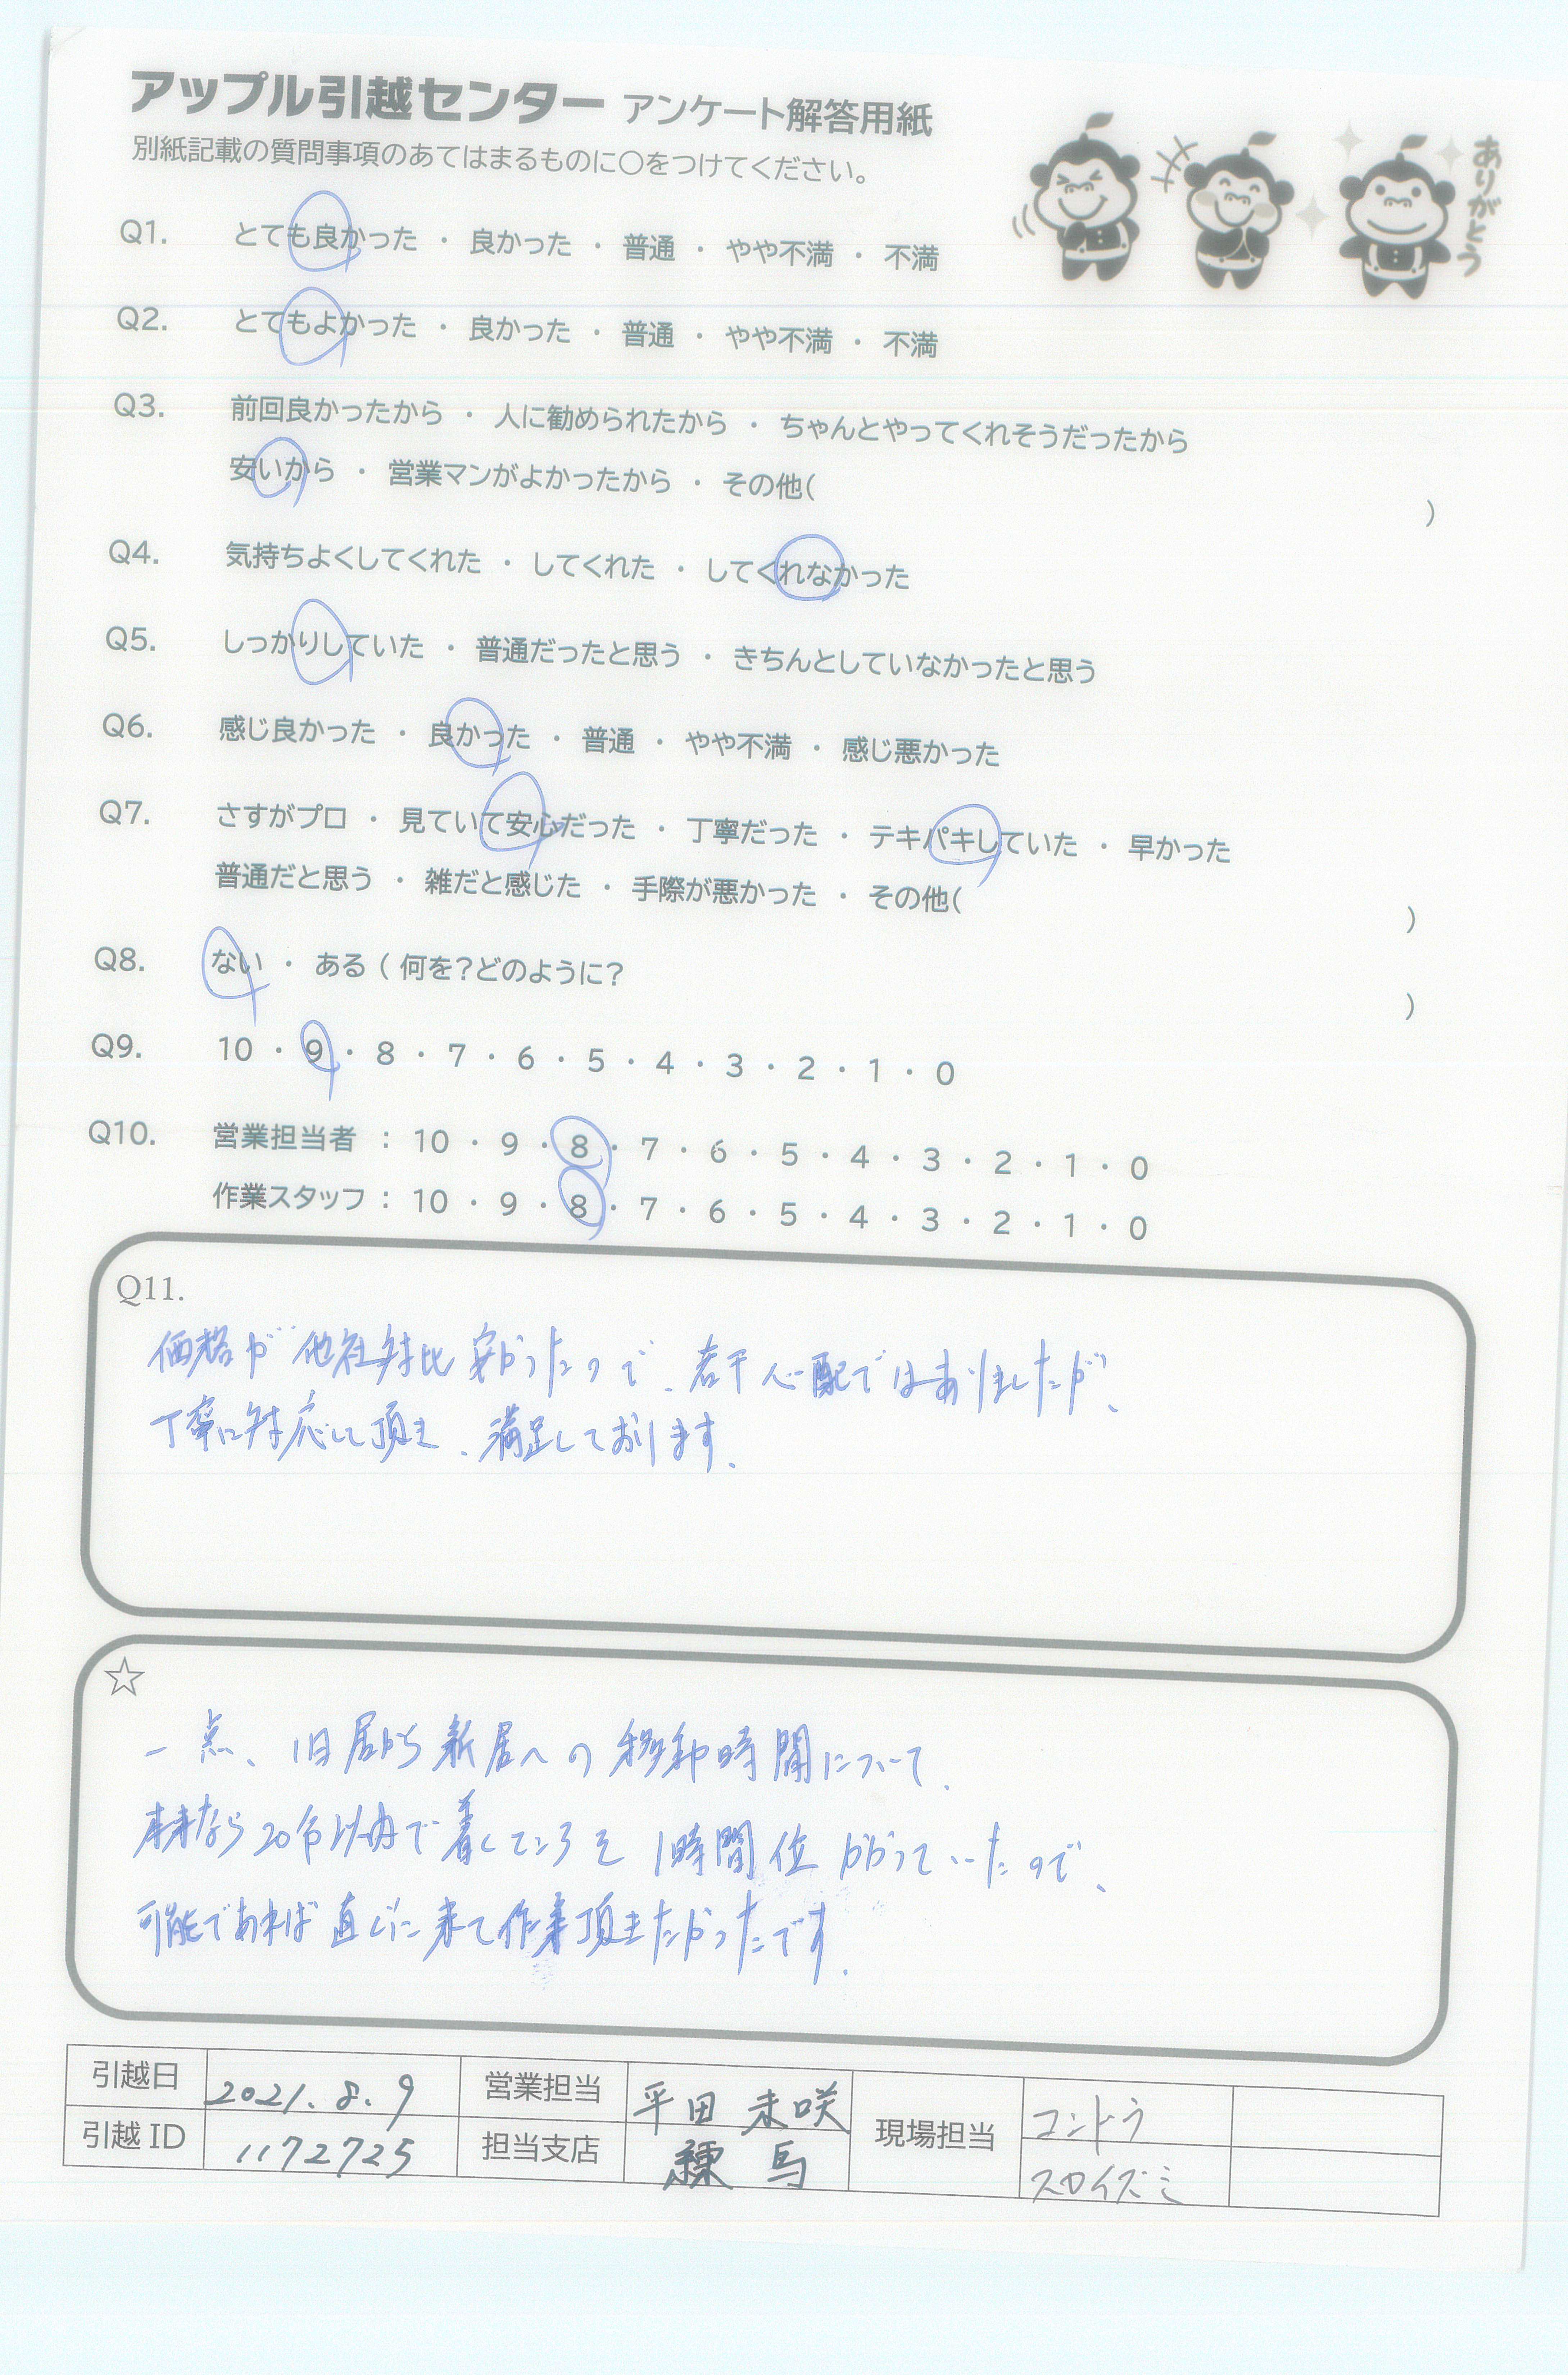 アップル引越センター アンケート解答用紙
別紙記載の質問事項のあてはまるものに〇をつけてください。
ありがとう
Q1. とても良かった ・ 良かった ・ 普通 ・ やや不満 ・ 不満
Q2. とてもよかった ・ 良かった ・ 普通 ・ やや不満 ・ 不満
Q3. 前回良かったから ・ 人に勧められたから ・ ちゃんとやってくれそうだったから
安いから ・ 営業マンがよかったから ・ その他( )
Q4. 気持ちよくしてくれた ・ してくれた ・ してくれなかった
Q5. しっかりしていた ・ 普通だったと思う ・ きちんとしていなかったと思う
Q6. 感じ良かった ・ 良かった ・ 普通 ・ やや不満 ・ 感じ悪かった
Q7. さすがプロ ・ 見ていて安心だった ・ 丁寧だった ・ テキパキしていた ・ 早かった
普通だと思う ・ 雑だと感じた ・ 手際が悪かった ・ その他( )
Q8. ない ・ ある ( 何を?どのように? )
Q9. 10 ・ 9 ・ 8 ・ 7 ・ 6 ・ 5 ・ 4 ・ 3 ・ 2 ・ 1 ・ 0
Q10. 営業担当者 : 10 ・ 9 ・ 8 ・ 7 ・ 6 ・ 5 ・ 4 ・ 3 ・ 2 ・ 1 ・ 0
作業スタッフ : 10 ・ 9 ・ 8 ・ 7 ・ 6 ・ 5 ・ 4 ・ 3 ・ 2 ・ 1 ・ 0
Q11.
価格が他社対比安かったので、若干心配ではありましたが、
丁寧に対応して頂き、満足しております。
☆
一点、旧居から新居への移動時間について、
本来なら20分以内で着くところを1時間位かかっていたので、
可能であれば直ぐに来て作業頂きたかったです。
引越日 2021.8.9 営業担当 平田 未咲 現場担当 コンドウ
引越ID 1172725 担当支店 練馬 スロイズミ